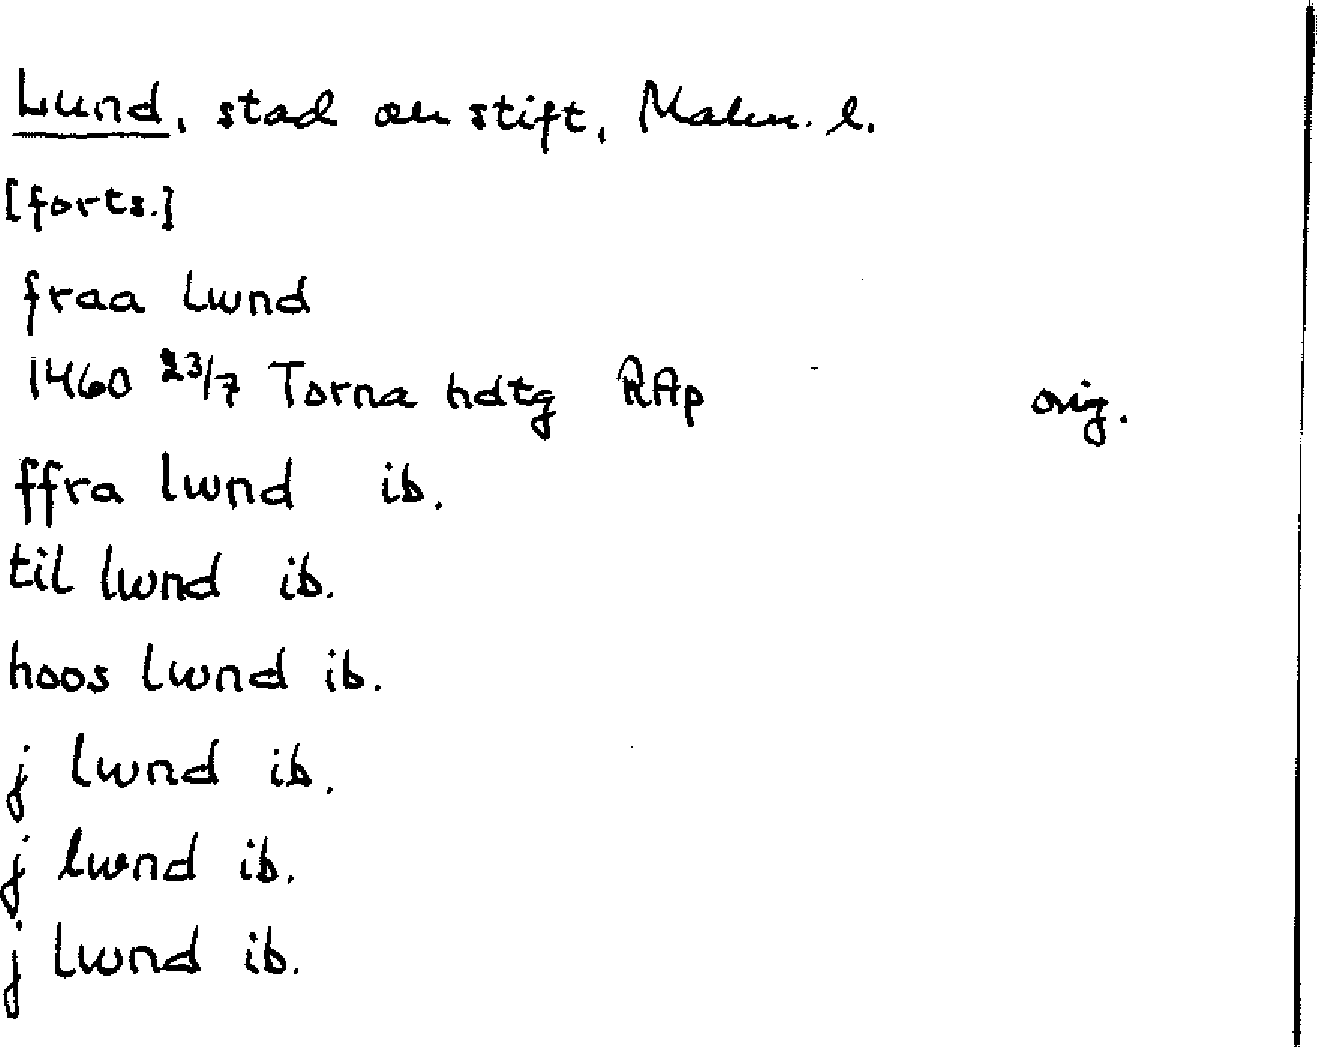 Lund, stad och stift, Malm. l.
[forts.]
fraa Lwnd
1460 23/7 Torna hdtg RAp orig.
ffra lwnd ib.
til lwnd ib.
hoos Lwnd ib.
j lwnd ib.
j lwnd ib.
j Lwnd ib.